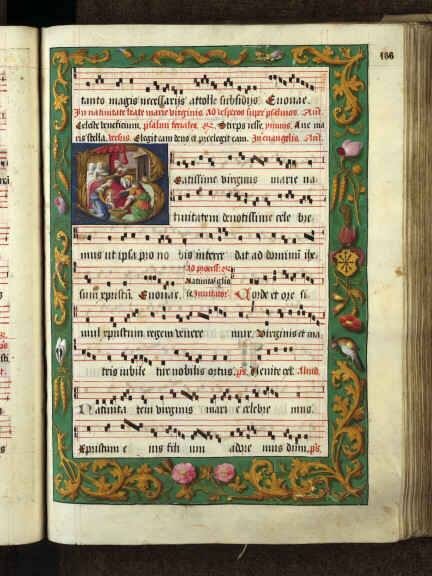 166
tanto magis necessarijs attolle subsidijs. Euouae.
In natiuitate beate marie virginis. Ad vesperos super psalmos. Añt.
Celeste beneficium. psalmi feriales. R. Stirps iesse. ymnus. Aue ma
ris stella. versus. Elegit eam deus et preelegit eam. In euangelio. Añt.
Beatissime virginis marie na
tiuitatem deuotissime cele bre
mus ut ipsa pro no bis interce dat ad dominū ihe
ad process: R.
sum xpistū. Euouae. Natiuitas glo
se. Inuitator. Corde et ore si
mul xpistum regem venere mur. Virginis et ma
tris iubile tur nobilis ortus. ps. Venite exl. Aliud.
Natiuita tem virginis marie celebre mus.
Xpistum e ius fili um adore mus dnm. ps.